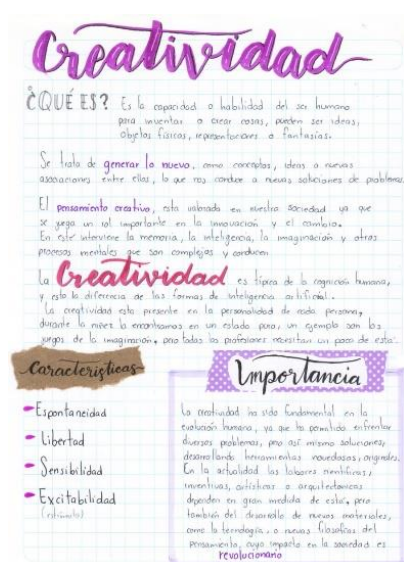 Creatividad
¿QUÉ ES? Es la capacidad o habilidad del ser humano
para inventar o crear cosas, pueden ser ideas,
objetos físicos, representaciones o fantasías.
Se trata de generar lo nuevo, como conceptos, ideas o nuevas
asociaciones entre ellas, lo que nos conduce a nuevas soluciones de problemas.
El pensamiento creativo, esta valorado en nuestra sociedad ya que
se juega un rol importante en la innovación y el cambio.
En este interviene la memoria, la inteligencia, la imaginación y otros
procesos mentales que son complejos y conducen
La Creatividad es típica de la cognición humana,
y esto la diferencia de las formas de inteligencia artificial.
La creatividad esta presente en la personalidad de cada persona,
durante la niñez la encontramos en un estado puro, un ejemplo son los
juegos de la imaginación, pero todas las profesiones necesitan un poco de esta.
Características
Espontaneidad
Libertad
Sensibilidad
Excitabilidad
(estímulos)
Importancia
La creatividad ha sido fundamental en la
evolución humana, ya que ha permitido enfrentar
diversos problemas, pero así mismo soluciones,
desarrollando herramientas novedosas, originales.
En la actualidad las labores científicas,
inventivas, artísticas o arquitectonicas
dependen en gran medida de esta, pero
también del desarrollo de nuevos materiales,
como la tecnología, o nuevas filosofías del
pensamiento, cuyo impacto en la sociedad es
revolucionario